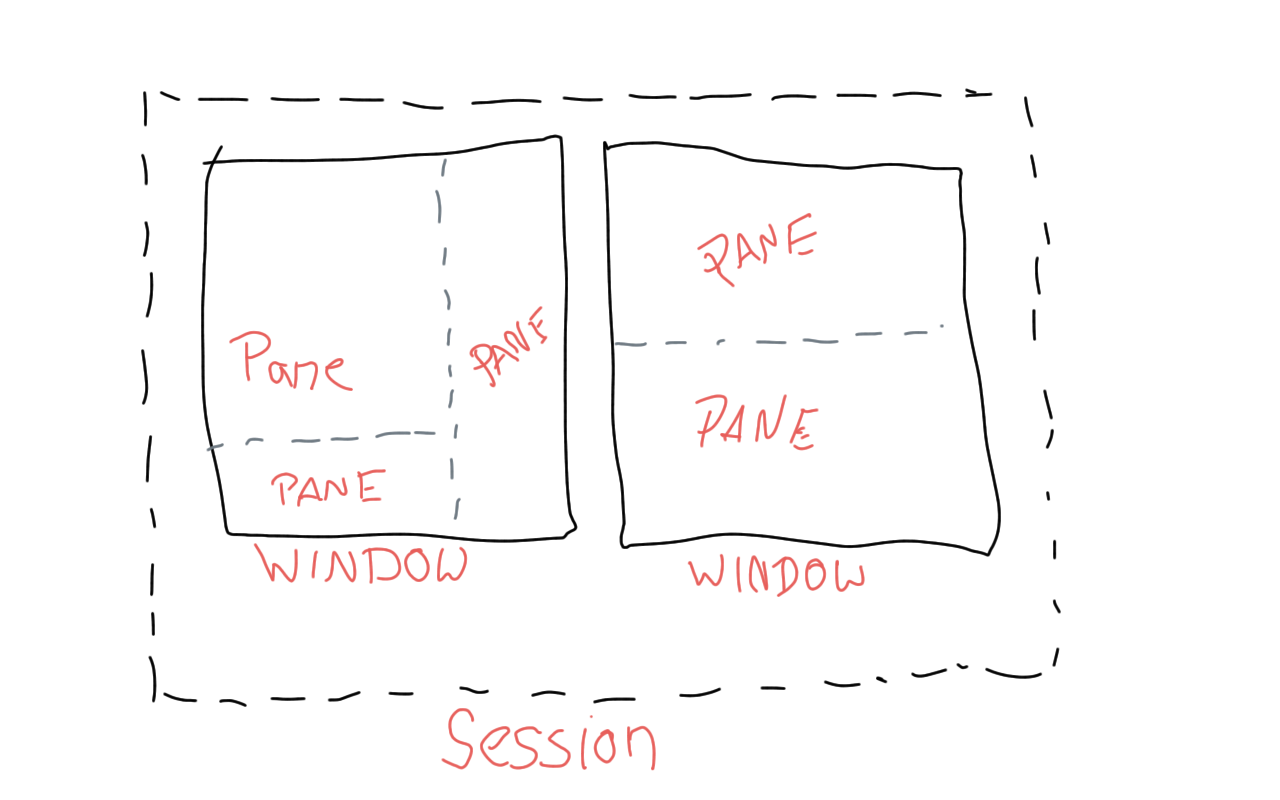 Pane
PANE
PANE
WINDOW
PANE
PANE
WINDOW
Session